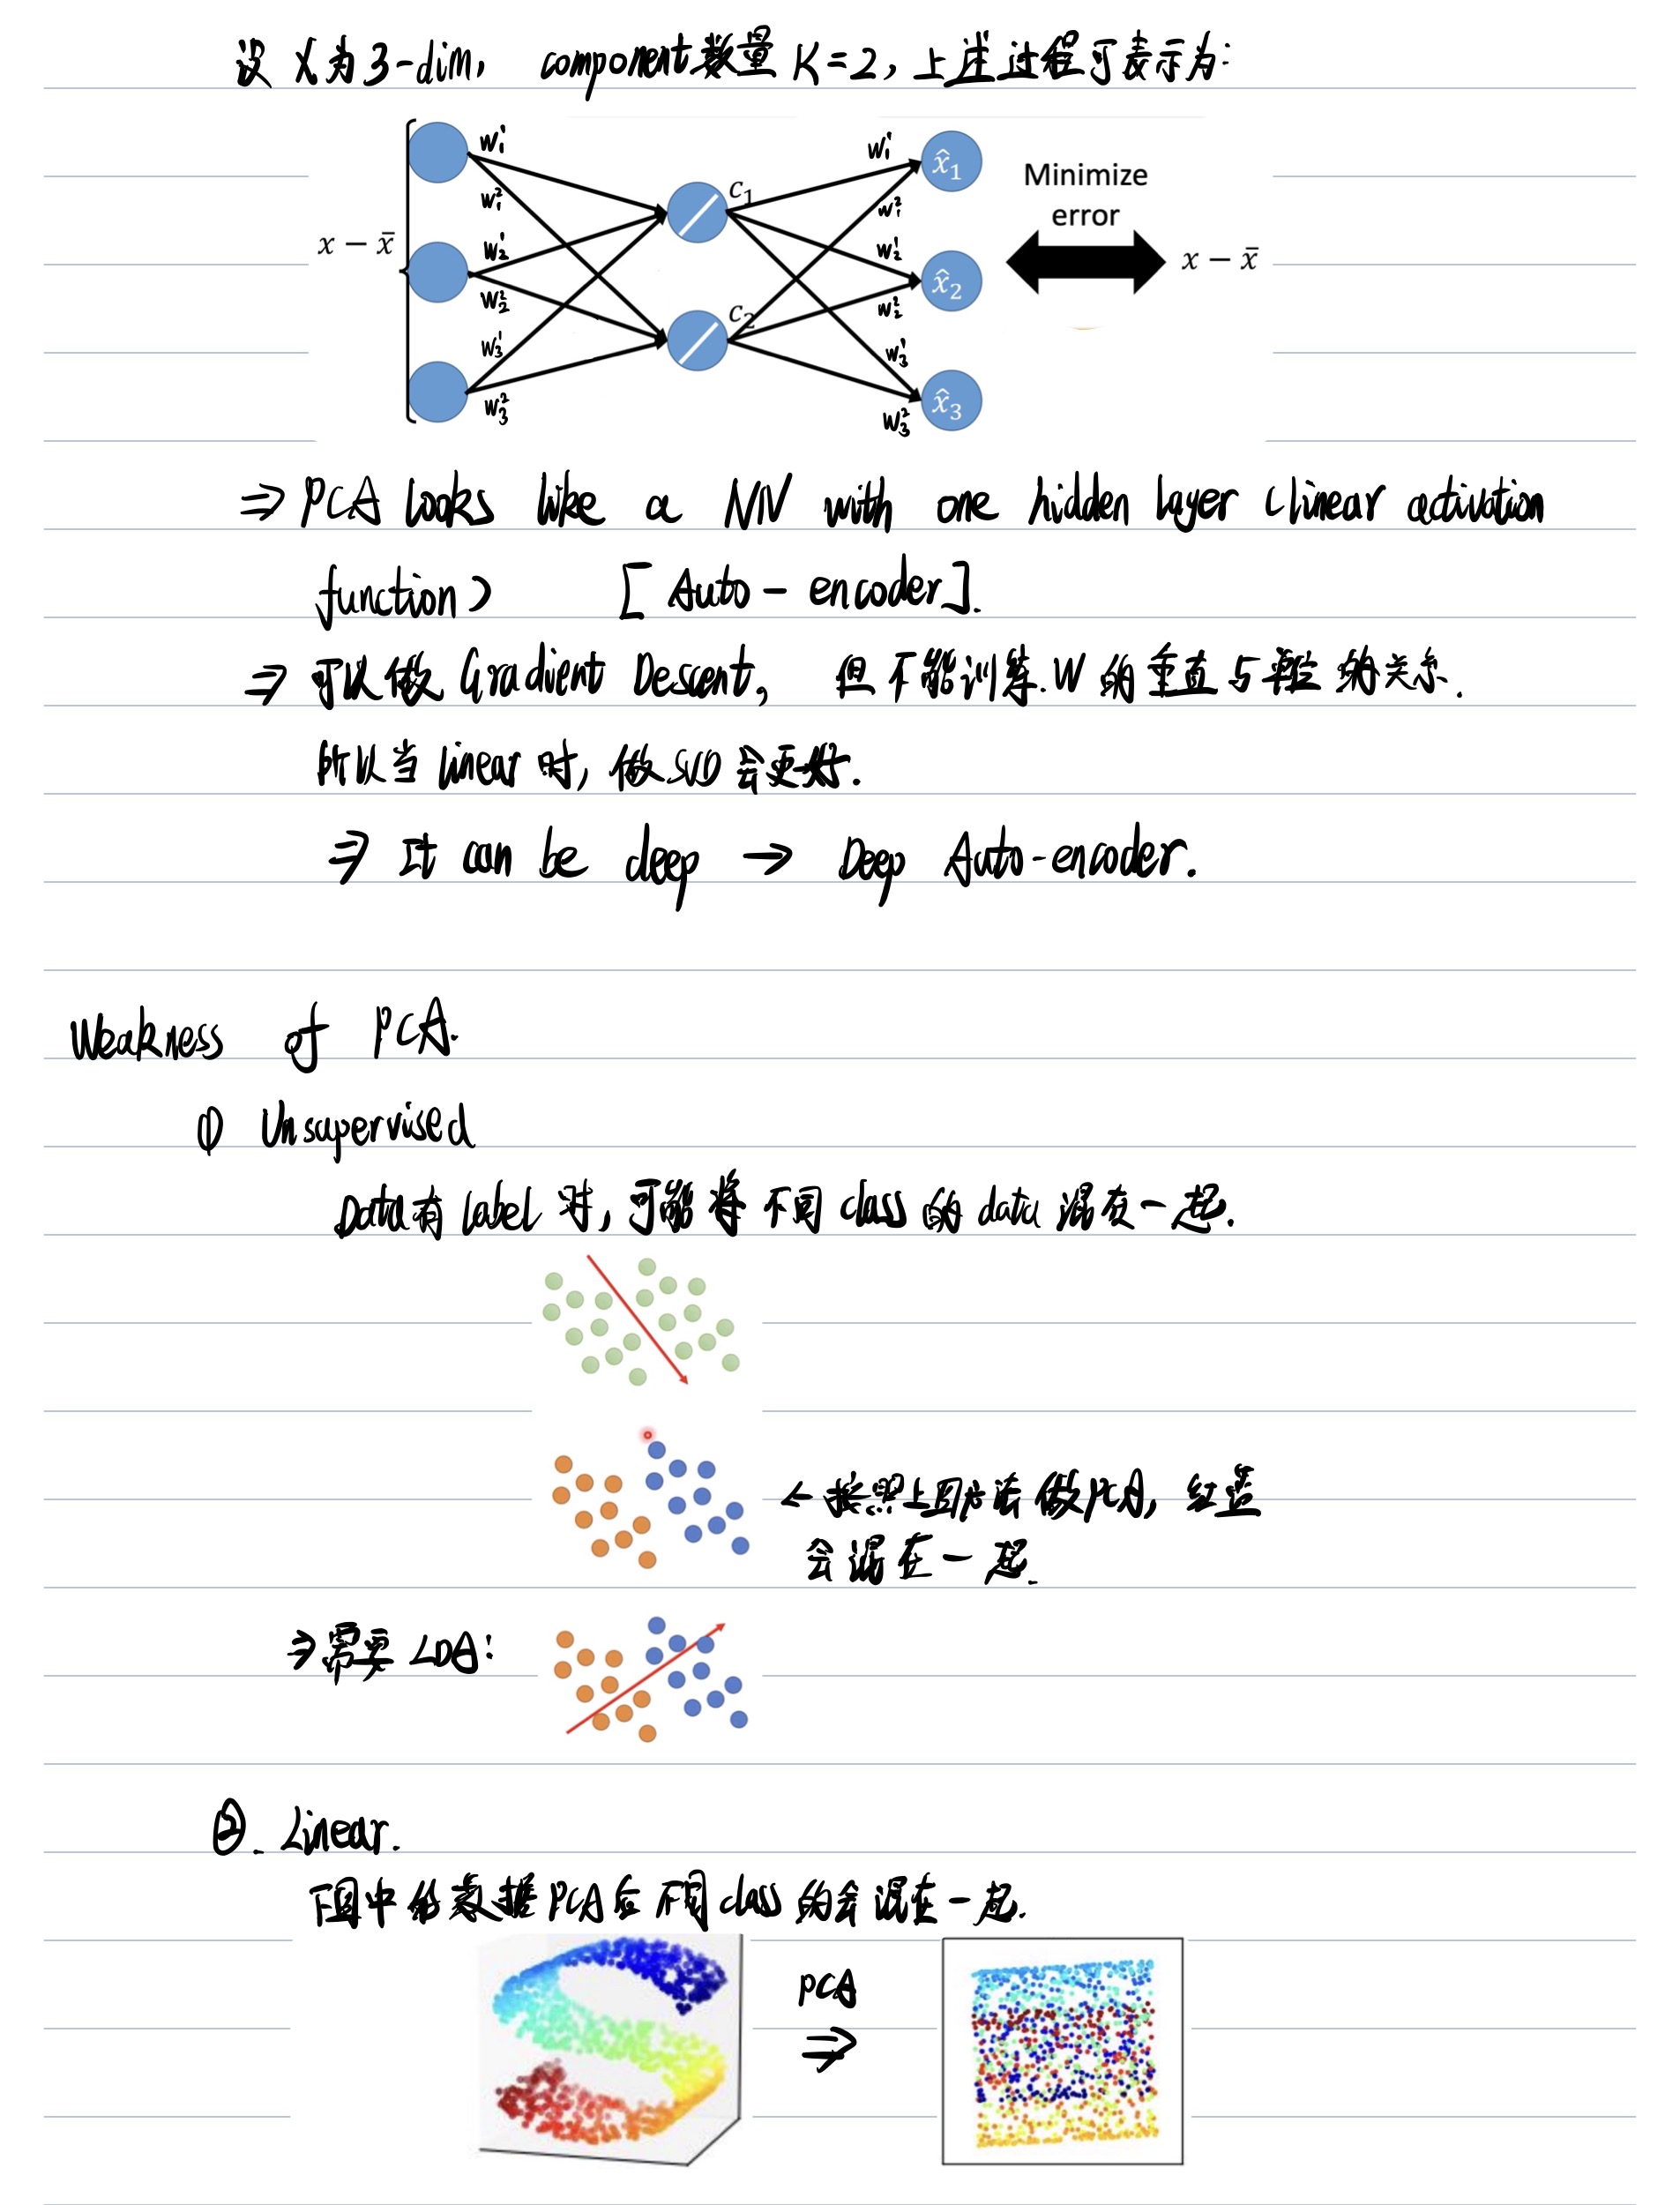 设 X 为 3-dim, component 数量 K=2, 上述过程可表示为:
w₁¹ w₁¹ x̂₁
c₁ Minimize
w₁² w₁² error
x − x̄ w₂¹ w₂¹ x̂₂ x − x̄
w₂² c₂ w₂²
w₃¹ w₃¹
w₃² w₃² x̂₃
⇒ PCA looks like a NN with one hidden layer (linear activation
function) [Auto-encoder].
⇒ 可以做 Gradient Descent, 但不能训练 W 的垂直与 的关系.
所以当 linear 时, 做 SVD 会更好.
⇒ It can be deep → Deep Auto-encoder.
Weakness of PCA.
① Unsupervised
Data 有 label 时, 可能将不同 class 的 data 混在一起.
← 按照上图方法做 PCA, 红蓝
会混在一起.
⇒ 需要 LDA:
②. Linear.
下图中的数据 PCA 后不同 class 的会混在一起.
PCA
⇒